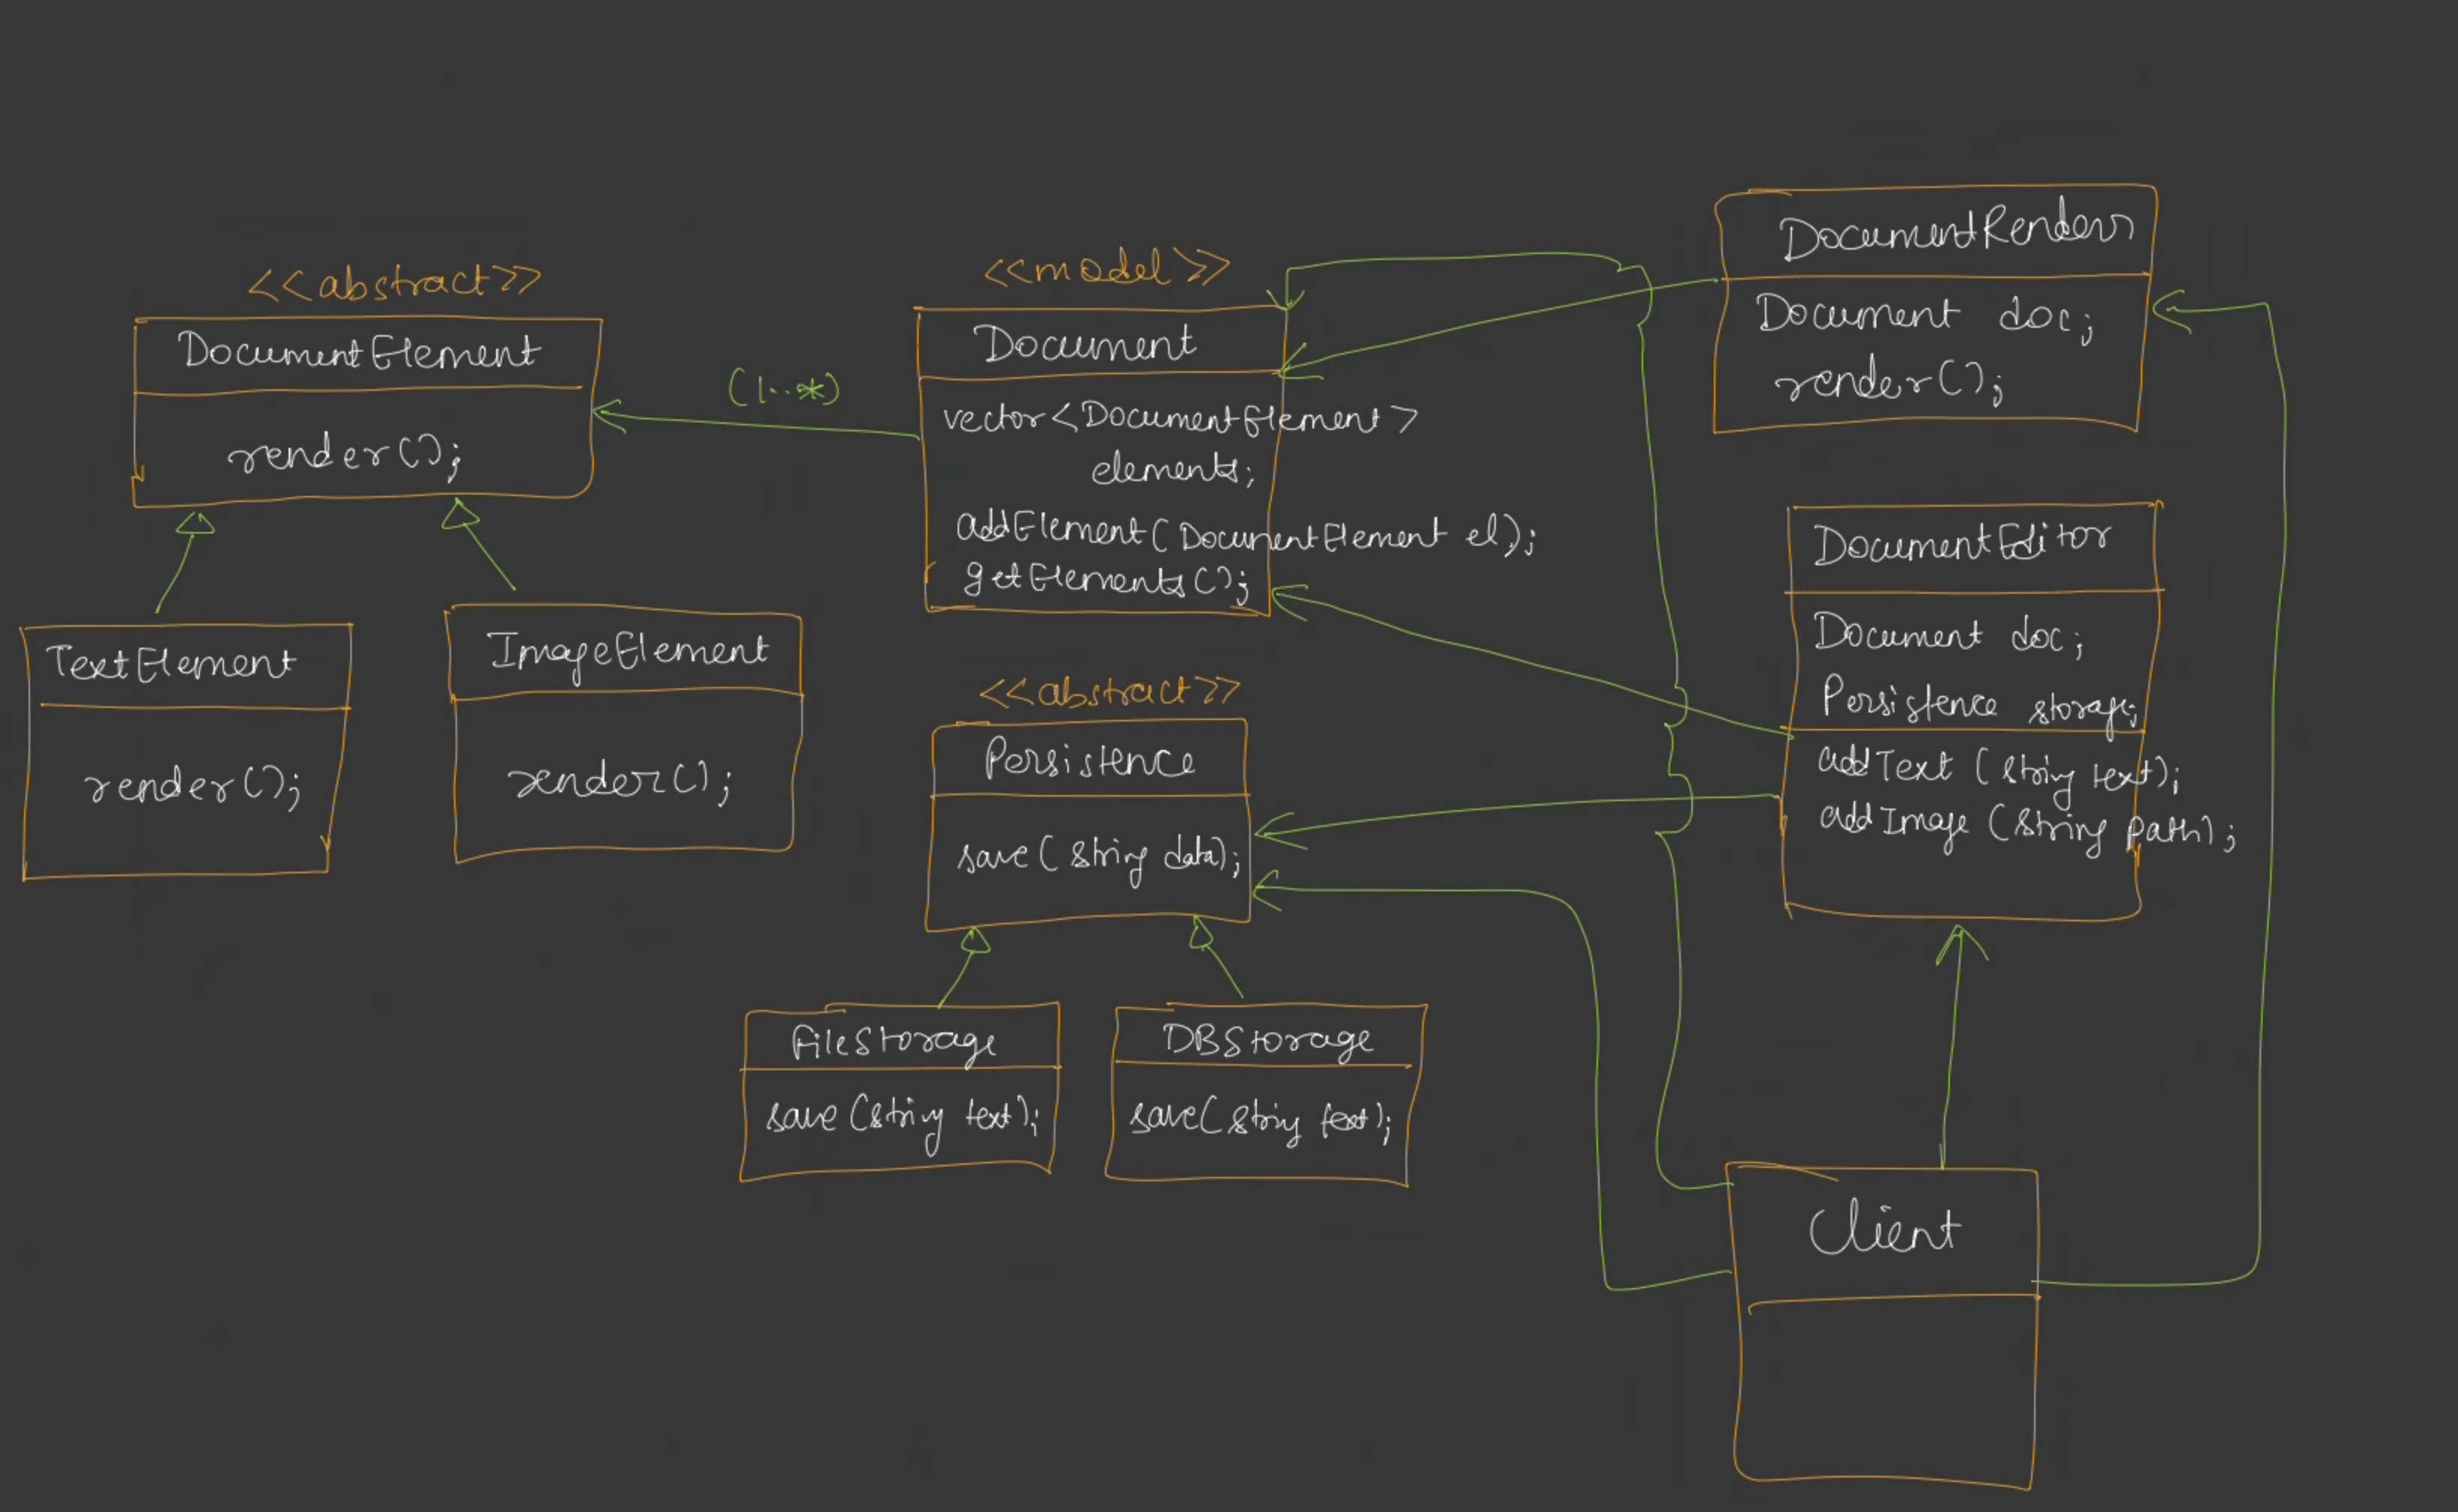 <<abstract>>
DocumentElement
render();
TextElement
render();
ImageElement
render();
(1..*)
<<model>>
Document
vector<DocumentElement>
elements;
addElement(DocumentElement el);
getElements();
<<abstract>>
Persistence
save(string data);
FileStorage
save(string text);
DBStorage
save(string text);
DocumentRender
Document doc;
render();
DocumentEditor
Document doc;
Persistence storage;
addText (string text);
addImage (string path);
Client